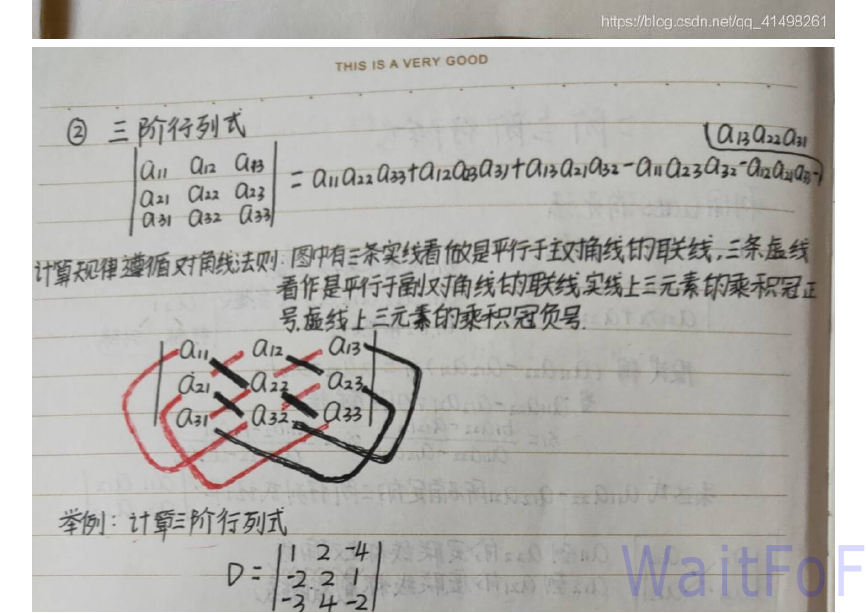 https://blog.csdn.net/qq_41498261
THIS IS A VERY GOOD
② 三阶行列式
a11 a12 a13
a21 a22 a23
a31 a32 a33
= a11a22a33+a12a23a31+a13a21a32-a11a23a32-a12a21a33-
a13a22a31
计算规律遵循对角线法则:图中有三条实线看做是平行于主对角线的联线,三条虚线
看作是平行于副对角线的联线,实线上三元素的乘积冠正
号,虚线上三元素的乘积冠负号.
a11 a12 a13
a21 a22 a23
a31 a32 a33
举例: 计算三阶行列式
D = | 1 2 -4 |
-2 2 1
-3 4 -2
WaitFoF